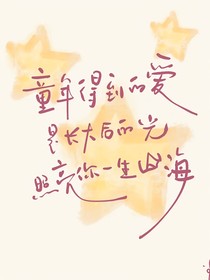 童年得到的爱
是长大后的光
照亮你一生山海